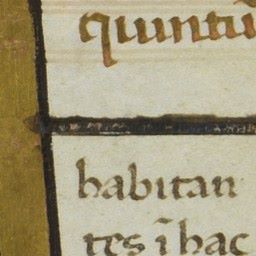 quintū
habitan
tes ī hac